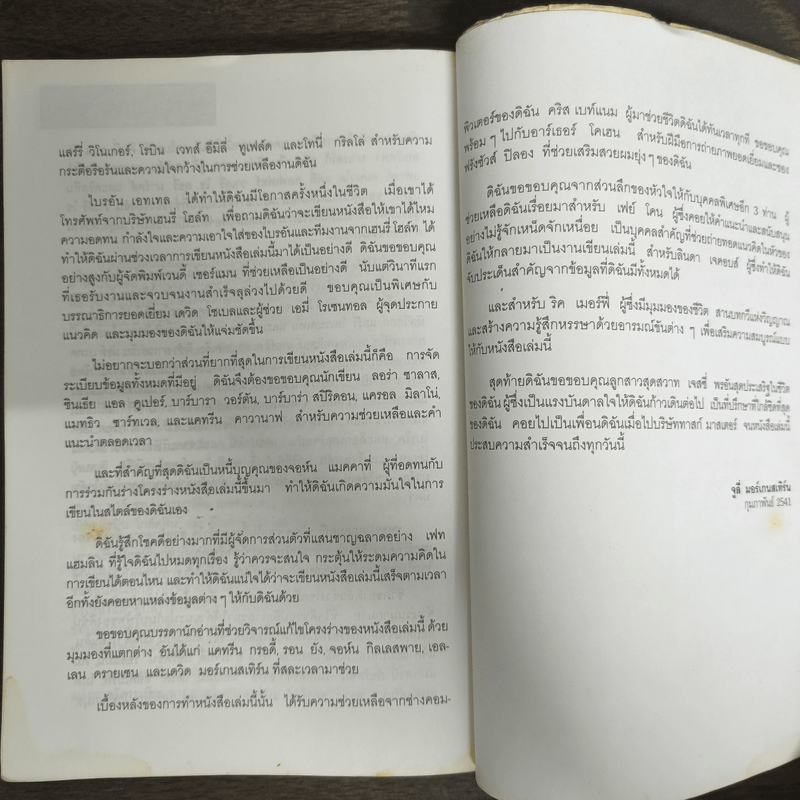 แลร์รี่ วิโนเกอร์, โรบิน เวทส์ อีมิลี่ ทูเฟล์ด และโทนี่ กริลโล่ สำหรับความ
กระตือรือร้นและความใจกว้างในการช่วยเหลืองานดิฉัน
ไบรอัน เอทเทล ได้ทำให้ดิฉันมีโอกาสครั้งหนึ่งในชีวิต เมื่อเขาได้
โทรศัพท์จากบริษัทเฮนรี่ โฮล์ท เพื่อถามดิฉันว่าจะเขียนหนังสือให้เขาได้ไหม
ความอดทน กำลังใจและความเอาใจใส่ของไบรอันและทีมงานจากเฮนรี่ โฮล์ท ได้
ทำให้ดิฉันผ่านช่วงเวลาการเขียนหนังสือเล่มนี้มาได้เป็นอย่างดี ดิฉันขอขอบคุณ
อย่างสูงกับผู้จัดพิมพ์เวนดี้ เชอร์แมน ที่ช่วยเหลือเป็นอย่างดี นับแต่วินาทีแรก
ที่เธอรับงานและจวบจนงานสำเร็จลุล่วงไปด้วยดี ขอบคุณเป็นพิเศษกับ
บรรณาธิการยอดเยี่ยม เดวิด โซเบลและผู้ช่วย เอมี่ โรเซนทอล ผู้จุดประกาย
แนวคิด และมุมมองของดิฉันให้แจ่มชัดขึ้น
ไม่อยากจะบอกว่าส่วนที่ยากที่สุดในการเขียนหนังสือเล่มนี้ก็คือ การจัด
ระเบียบข้อมูลทั้งหมดที่มีอยู่ ดิฉันจึงต้องขอขอบคุณนักเขียน ลอร่า ซาลาส,
ซินเธีย แอล คูเปอร์, บาร์บารา วอร์ตัน, บาร์บาร่า สปิริดอน, แครอล มิลาโน่,
แมทธิว ซาร์ทเวล, และแคทรีน คาวานาฟ สำหรับความช่วยเหลือและคำ
แนะนำตลอดเวลา
และที่สำคัญที่สุดดิฉันเป็นหนี้บุญคุณของจอห์น แมคคาที่ ผู้ที่อดทนกับ
การร่วมกันร่างโครงร่างหนังสือเล่มนี้ขึ้นมา ทำให้ดิฉันเกิดความมั่นใจในการ
เขียนในสไตล์ของดิฉันเอง
ดิฉันรู้สึกโชคดีอย่างมากที่มีผู้จัดการส่วนตัวที่แสนชาญฉลาดอย่าง เฟท
แฮมลิน ที่รู้ใจดิฉันไปหมดทุกเรื่อง รู้ว่าควรจะสนใจ กระตุ้นให้ระดมความคิดใน
การเขียนได้ตอนไหน และทำให้ดิฉันแน่ใจได้ว่าจะเขียนหนังสือเล่มนี้เสร็จตามเวลา
อีกทั้งยังคอยหาแหล่งข้อมูลต่าง ๆ ให้กับดิฉันด้วย
ขอขอบคุณบรรดานักอ่านที่ช่วยวิจารณ์แก้ไขโครงร่างของหนังสือเล่มนี้ ด้วย
มุมมองที่แตกต่าง อันได้แก่ แคทรีน กรอดี้, รอน ยัง, จอห์น กิลเลสพาย, เอล-
เลน ดรายเซน และเดวิด มอร์เกนสเทิร์น ที่สละเวลามาช่วย
เบื้องหลังของการทำหนังสือเล่มนี้นั้น ได้รับความช่วยเหลือจากช่างคอม-
พิวเตอร์ของดิฉัน คริส เบท์แนม ผู้มาช่วยชีวิตดิฉันได้ทันเวลาทุกที ขอขอบคุณ
พร้อม ๆ ไปกับอาร์เธอร์ โคเฮน สำหรับฝีมือการถ่ายภาพยอดเยี่ยมและของ
ฟรังซัวส์ ปิลอง ที่ช่วยเสริมสวยผมยุ่ง ๆ ของดิฉัน
ดิฉันขอขอบคุณจากส่วนลึกของหัวใจให้กับบุคคลพิเศษอีก 3 ท่าน ผู้
ช่วยเหลือดิฉันเรื่อยมาสำหรับ เฟย์ โดน ผู้ซึ่งคอยให้คำแนะและสนับสนุน
อย่างไม่รู้จักเหน็ดจักเหนื่อย เป็นบุคคลสำคัญที่ช่วยถ่ายทอดแนวคิดในหัวของ
ดิฉันให้กลายมาเป็นงานเขียนเล่มนี้ สำหรับลินดา เจคอบส์ ผู้ซึ่งทำให้ดิฉัน
จับประเด็นสำคัญจากข้อมูลที่ดิฉันมีทั้งหมดได้
และสำหรับ ริค เมอร์ฟี่ ผู้ซึ่งมีมุมมองของชีวิต สานบทกวีแห่งวิญญาณ
และสร้างความรู้สึกหรรษาด้วยอารมณ์ขันต่าง ๆ เพื่อเสริมความสมบูรณ์แบบ
ให้กับหนังสือเล่มนี้
สุดท้ายดิฉันขอขอบคุณลูกสาวสุดสวาท เจสซี่ พรอันสุดประเสริฐในชีวิต
ของดิฉัน ผู้ซึ่งเป็นแรงบันดาลใจให้ดิฉันก้าวเดินต่อไป เป็นที่ปรึกษาที่ใกล้ชิดที่สุด
ของดิฉัน คอยไปเป็นเพื่อนดิฉันเมื่อไปบริษัททาสก์ มาสเตอร์ จนหนังสือเล่มนี้
ประสบความสำเร็จจนถึงทุกวันนี้
จูลี่ มอร์เกนสเทิร์น
กุมภาพันธ์ 2541